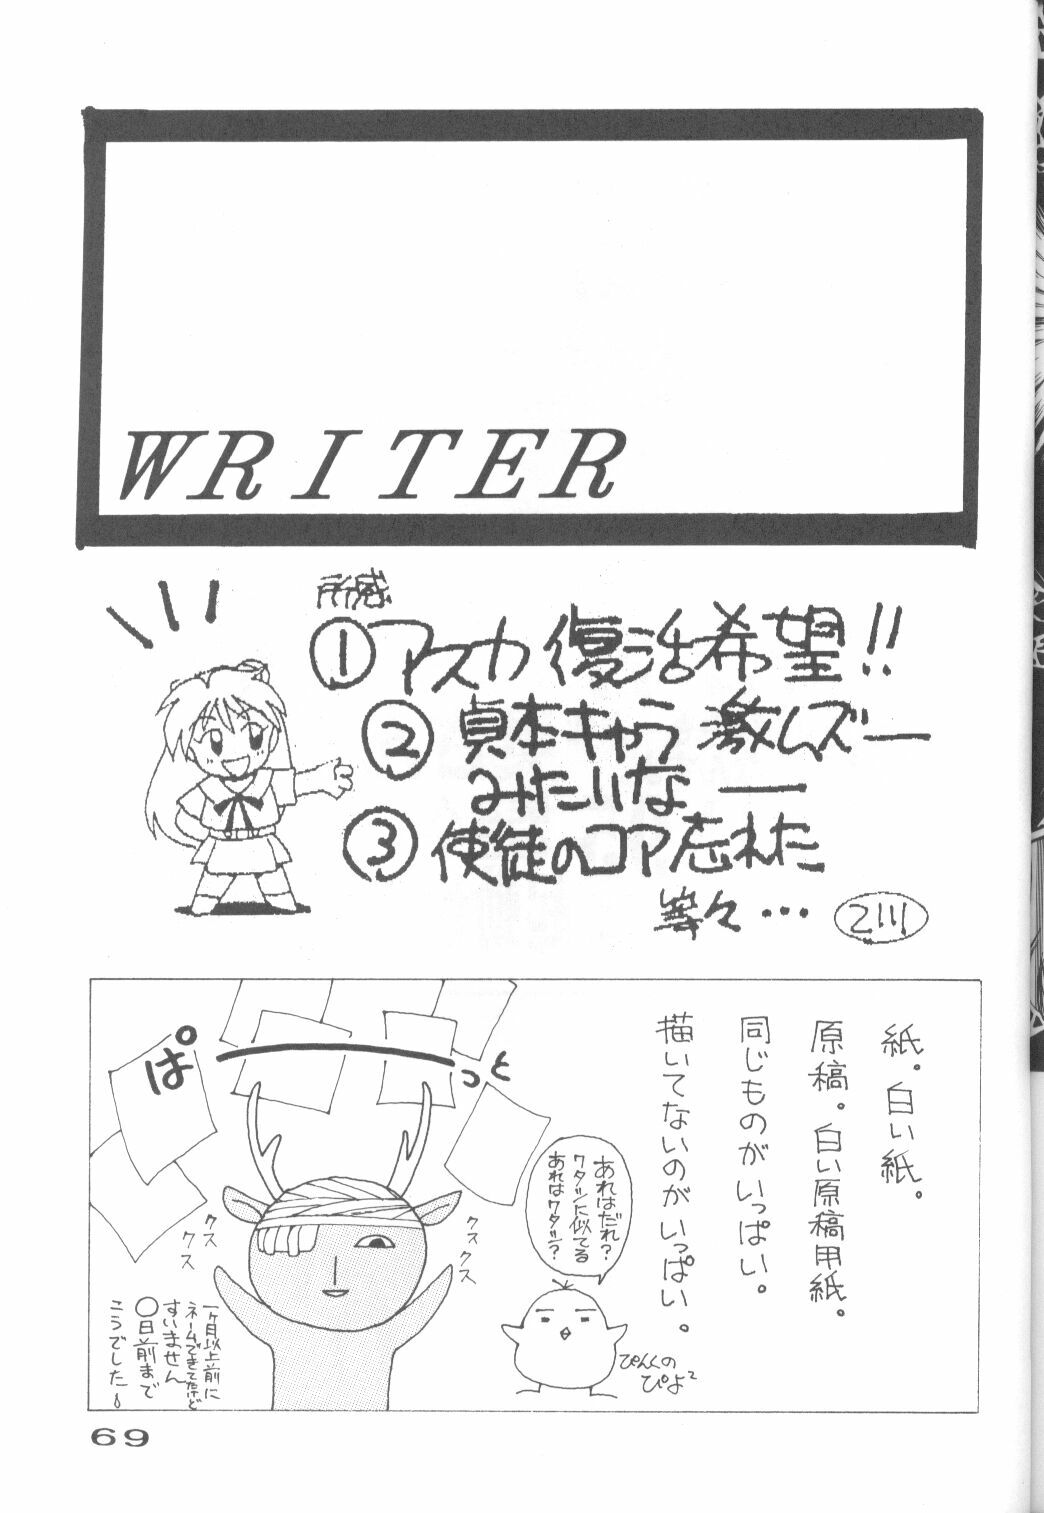 WRITER
所感
①アスカ復活希望!!
②貞本キャラ激ムズー
みたいなー
③使徒のコア忘れた
等々…
紙。白い紙。
原稿。白い原稿用紙。
同じものがいっぱい。
描いてないのがいっぱい。
ぱーっと
あれはだれ?
ワタシに似てる
あれはワタシ?
クスクス
クスクス
ぴんくの
ぴよ²
一ヶ月以上前に
ネームできてたけど
すいません
〇日前まで
こうでした
69